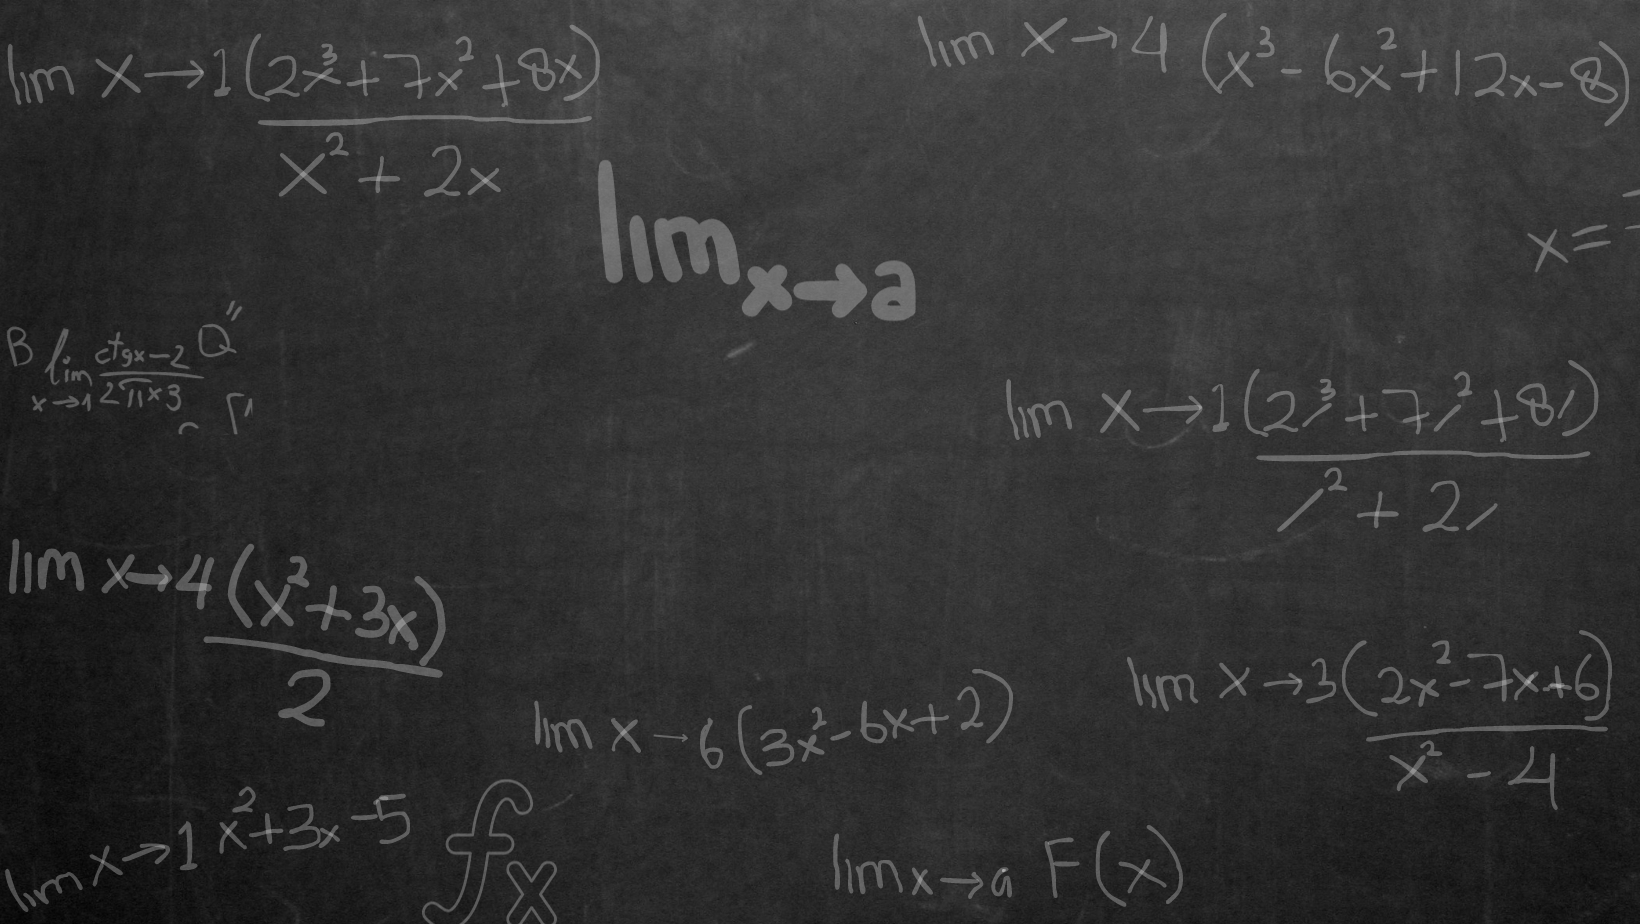 lim x→1 (2x³+7x²+8x)
x²+2x
lim x→4 (x³-6x²+12x-8)
lim x→a
x=
B lim x→1 ctgx-2
lim x→1 (2 ³+7 ²+8 )
²+2
lim x→4 (x²+3x)
2
lim x→6 (3x²-6x+2)
lim x→3 (2x²-7x+6)
x²-4
lim x→1 x²+3x-5
fx
lim x→a F(x)